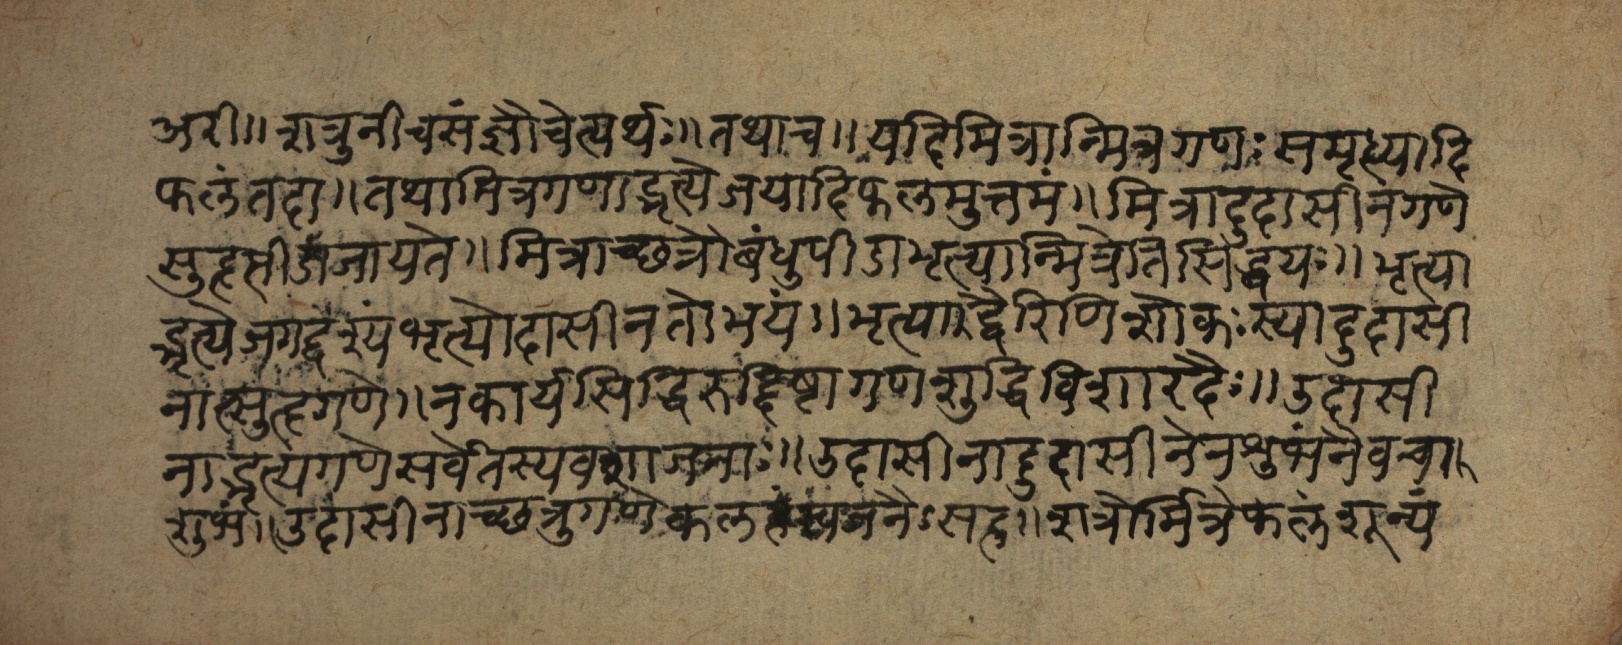 अरी॥ शत्रुनीचसंज्ञौचेत्यर्थः॥ तथाच॥ यदिमित्रान्मित्रगणः समृध्यादि
फलं तदा॥ तथामित्रगणाद्भृत्यैजयादिफलमुत्तमं॥ मित्रादुदासीनगणे
सुहृत्पीडाजायते॥ मित्राच्छत्रोबंधुपीडाभृत्यान्मित्रेतिसिद्धयः॥ भृत्या
द्भृत्येजगद्वश्यंभृत्योदासीनतोभयं॥ भृत्याद्वैरिणिशोकःस्यादुदासी
नात्सुहृगणे॥ नकार्यसिद्धिरुद्दिष्टागणशुद्धिविशारदैः॥ उदासी
नाद्भृत्यगणेसर्वेतस्यवशाजनाः॥ उदासीनादुदासीनेनशुभंनैवचा
शुभं॥ उदासीनाच्छत्रुगणेकलहंस्वजनैःसह॥ शत्रोर्मित्रेफलंशून्यं